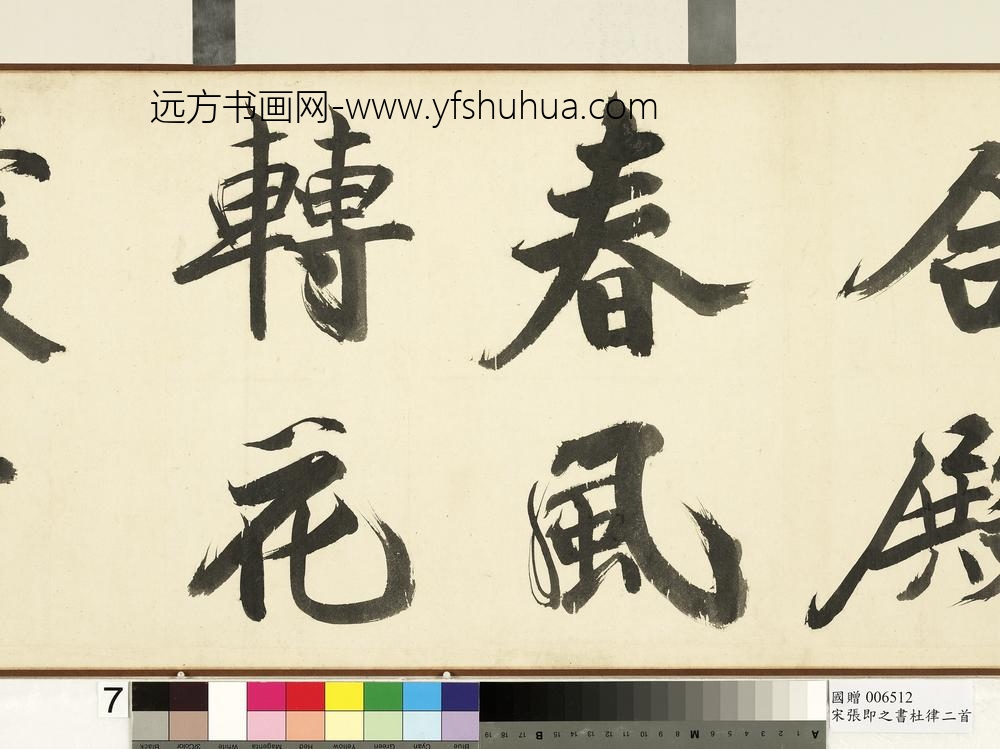 远方书画网-www.yfshuhua.com
合殿
春風
轉花
7
國贈 006512
宋張即之書杜律二首
Blue Cyan Green Yellow Red Magenta White 3/Color Black
A 1 2 3 4 5 6 M 8 9 10 11 12 13 14 15 B 17 18 19